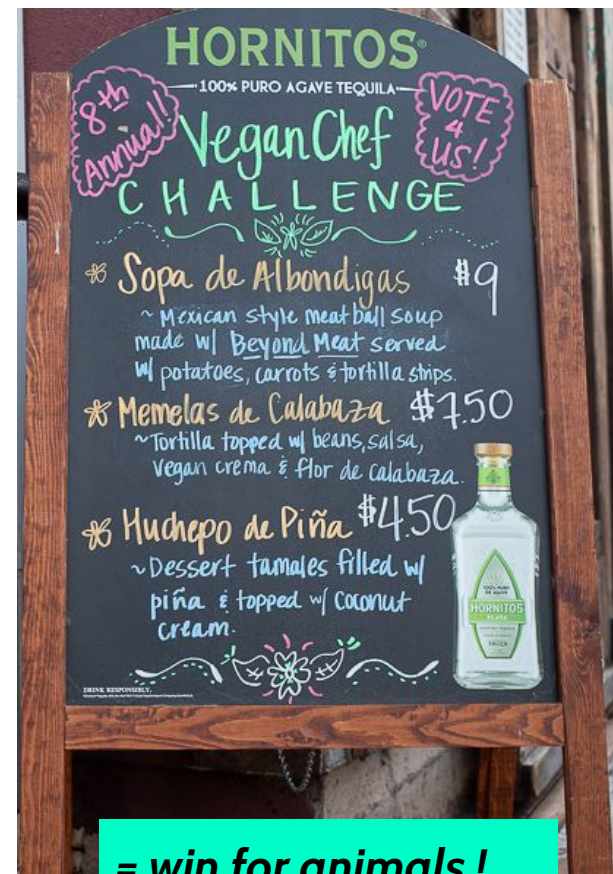 HORNITOS®
100% PURO AGAVE TEQUILA
8th Annual!!
VOTE 4 US!
Vegan Chef
CHALLENGE
Sopa de Albondigas $9
~ Mexican style meatball soup
made w/ Beyond Meat served
w/ potatoes, carrots & tortilla strips.
Memelas de Calabaza $7.50
~ Tortilla topped w/ beans, salsa,
vegan crema & flor de calabaza.
Huchepo de Piña $4.50
~ Dessert tamales filled w/
piña & topped w/ coconut
cream.
100% PURO
DE AGAVE
HORNITOS
PLATA
SAUZA
DRINK RESPONSIBLY.
= win for animals!